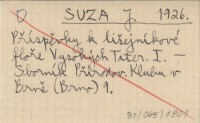 O SUZA J. 1926.
Příspěvky k lišejníkové
floře Vysokých Tater. I. —
Sborník Přírodov. Klubu v
Brně (Brno) 9.